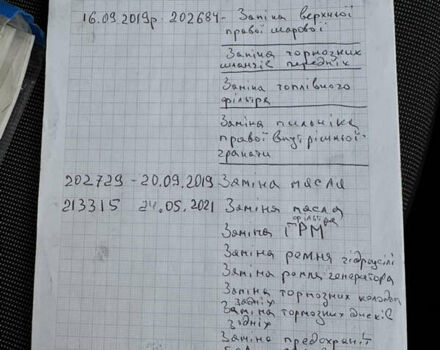 16.09.2019р. 202684 - Заміна верхньої
правої шарової
Заміна тормозних
шлангів передніх
Заміна топлівного
фільтра
Заміна пильніка
правої внутрішньої
гранати
202729 - 20.09.2019 Заміна масла
213315 24.05.2021 Заміна масла
фільтра
Заміна ГРМ
Заміна ремня гідроусілі
Заміна ремня генератора
Заміна тормозних колодок
задніх
Заміна тормозних дисків
задніх
Заміна предохраніт